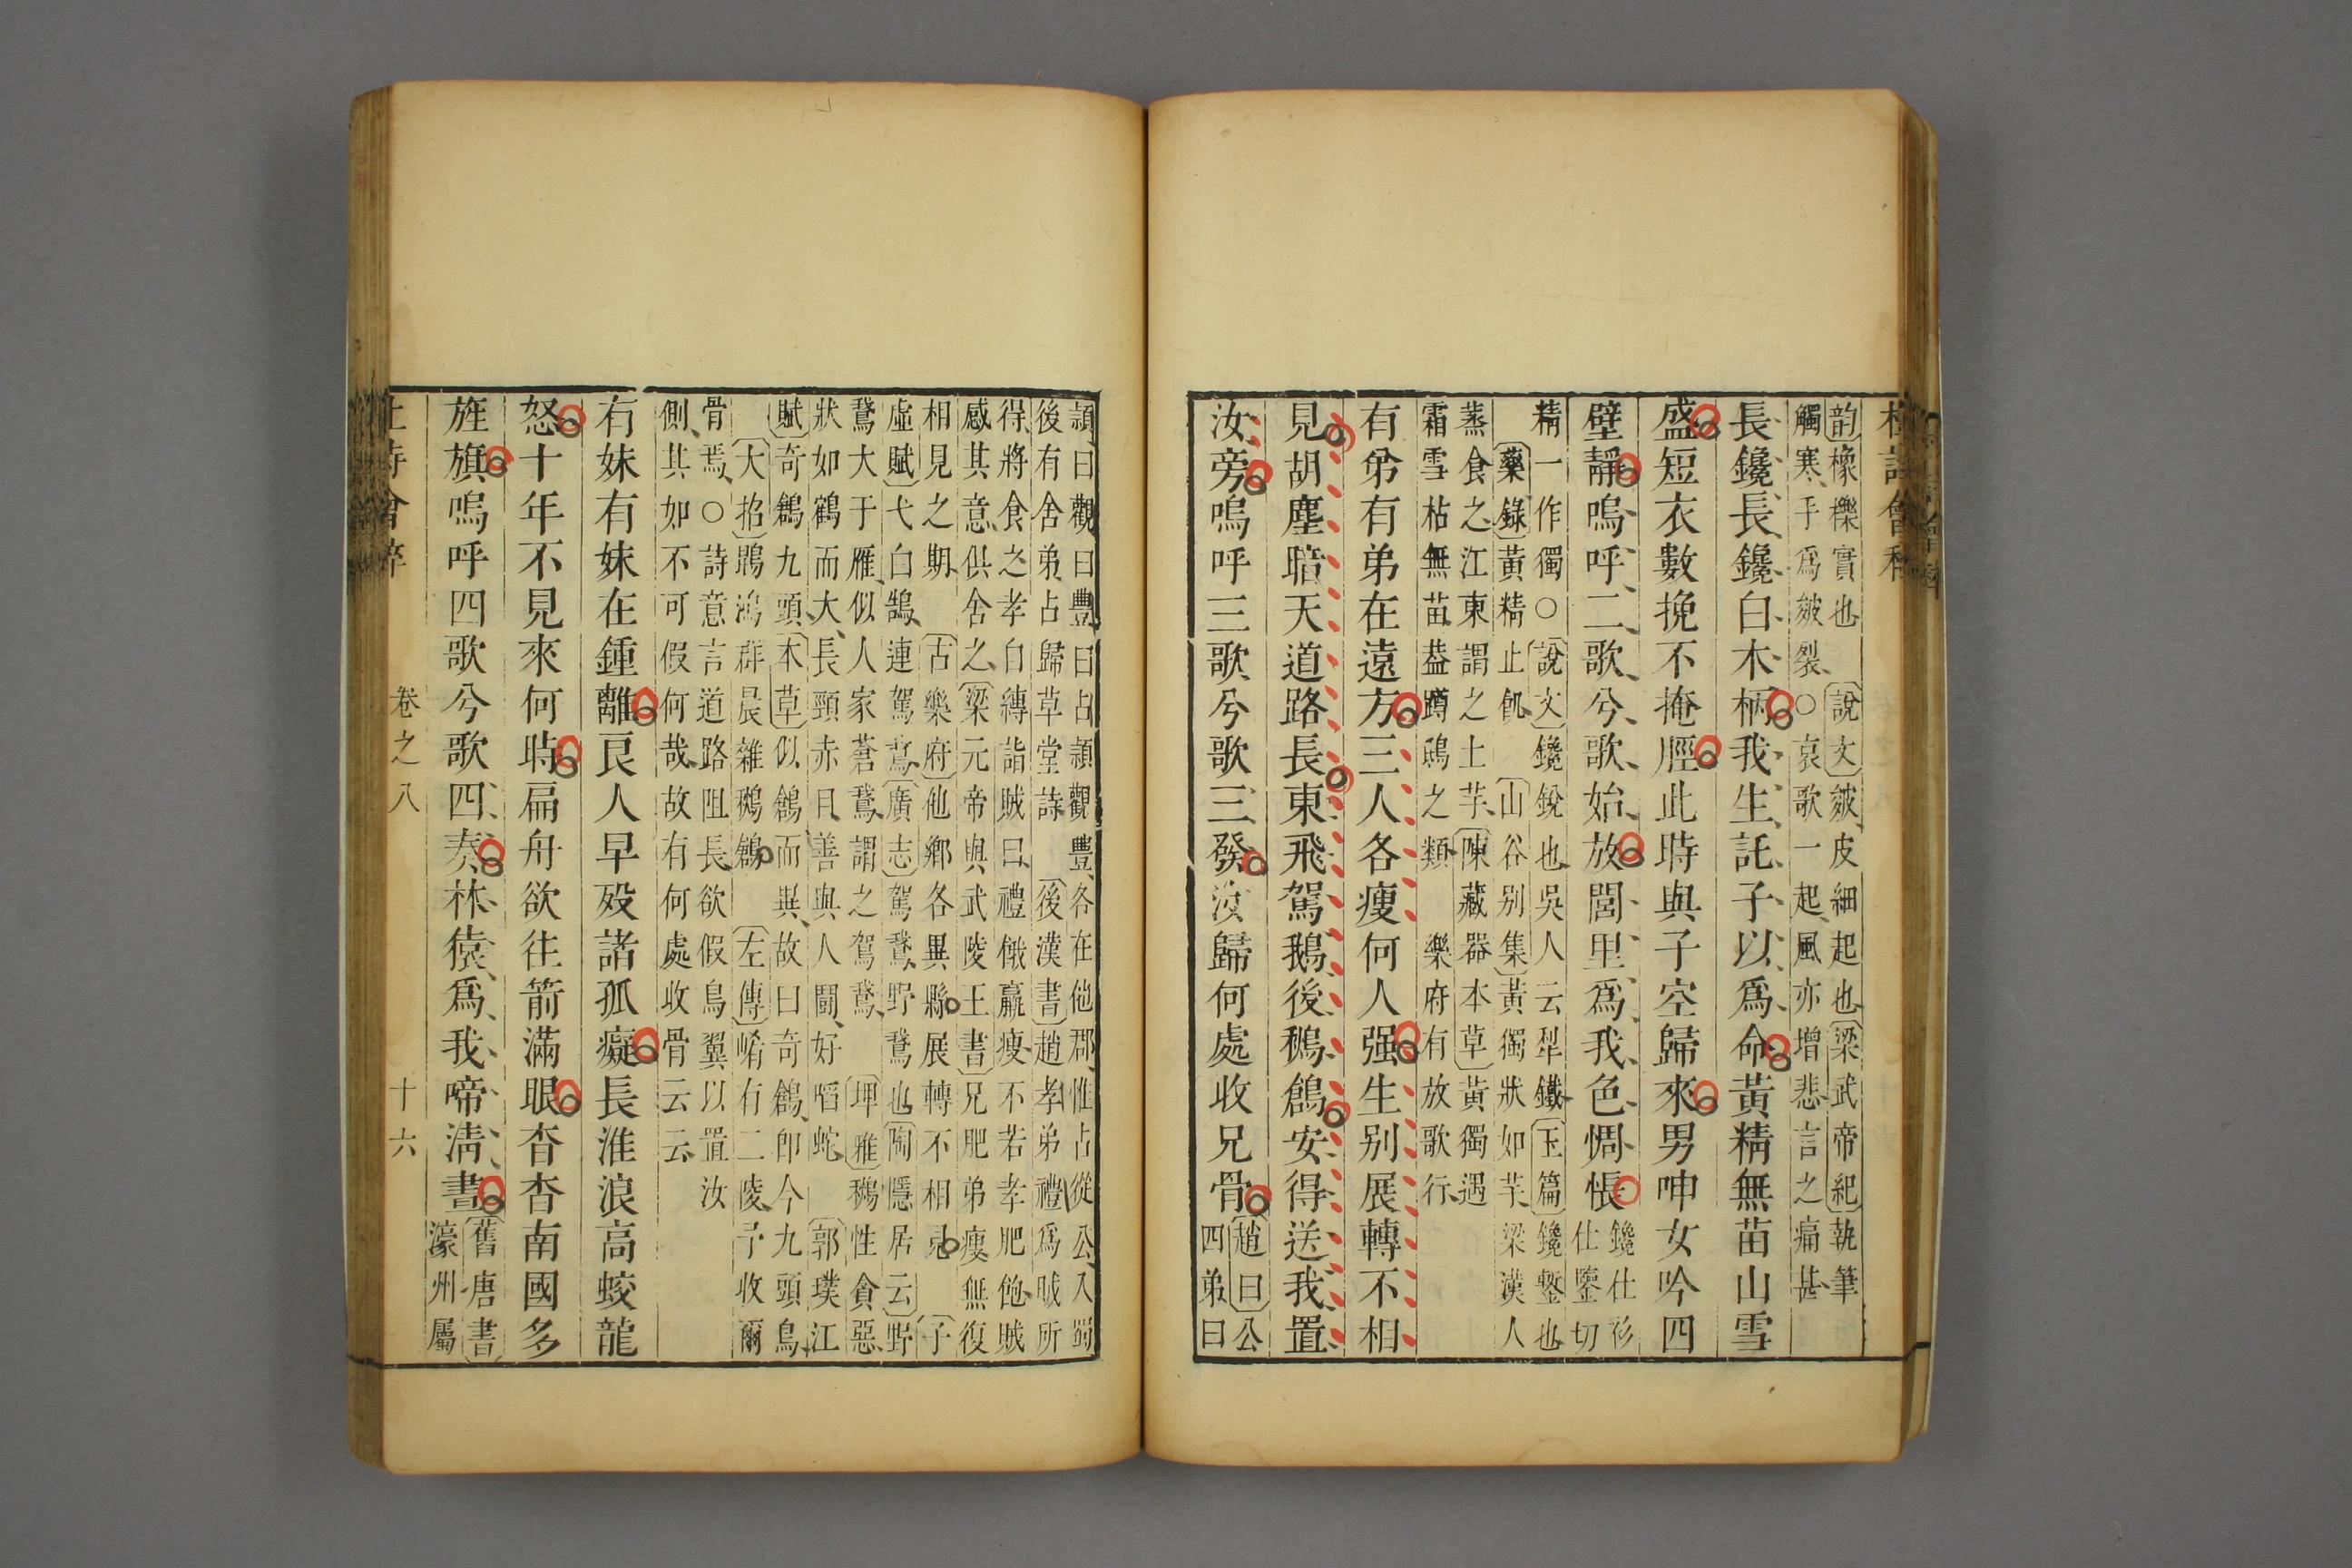 杜詩會稡
韵橡櫟實也 說文皴皮細起也梁武帝紀執筆
觸寒手爲皴裂○哀歌一起風亦增悲言之痛甚
長鑱長鑱白木柄我生託子以爲命黃精無苗山雪
盛短衣數挽不掩脛此時與子空歸來男呻女吟四
壁靜嗚呼二歌兮歌始放閭里爲我色惆悵
鑱仕衫
仕鑒切
精一作獨○說文鑱銳也吳人云犁鐵玉篇鑱鏨也
藥錄黃精止飢 山谷别集黃獨狀如芋梁漢人
蒸食之江東謂之土芋陳藏器本草黃獨遇
霜雪枯無苗葢蹲鴟之類 樂府有放歌行
有弟有弟在遠方三人各瘦何人强生别展轉不相
見胡塵暗天道路長東飛駕鵝後鶖鶬安得送我置
汝旁嗚呼三歌兮歌三發汝歸何處收兄骨
趙曰公
四弟曰
穎曰觀曰豐曰占穎觀豐各在他郡惟占從公入蜀
後有舍弟占歸草堂詩 後漢書趙孝弟禮爲賊所
得將食之孝自縛詣賊曰禮餓羸瘦不若孝肥飽賊
感其意俱舍之梁元帝與武陵王書兄肥弟瘦無復
相見之期 古樂府他鄉各異縣展轉不相見 子
虛賦弋白鵠連駕鵞廣志駕鵞野鵞也陶隱居云野
鵞大于雁似人家蒼鵞謂之駕鵞 埤雅鶖性貪惡
狀如鶴而大長頸赤目善與人鬪好啗蛇 郭璞江
賦奇鶬九頭本草似鶬而異故曰奇鶬即今九頭鳥
大招鵾鴻群晨雜鶖鶬 左傳崤有二陵予收爾
骨焉○詩意言道路阻長欲假鳥翼以置汝
側其如不可假何哉故有何處收骨云云
有妹有妹在鍾離良人早殁諸孤癡長淮浪高蛟龍
怒十年不見來何時扁舟欲往箭滿眼杳杳南國多
旌旗嗚呼四歌兮歌四奏林猿爲我啼淸晝
舊唐書
濠州屬
杜詩會稡 卷之八 十六